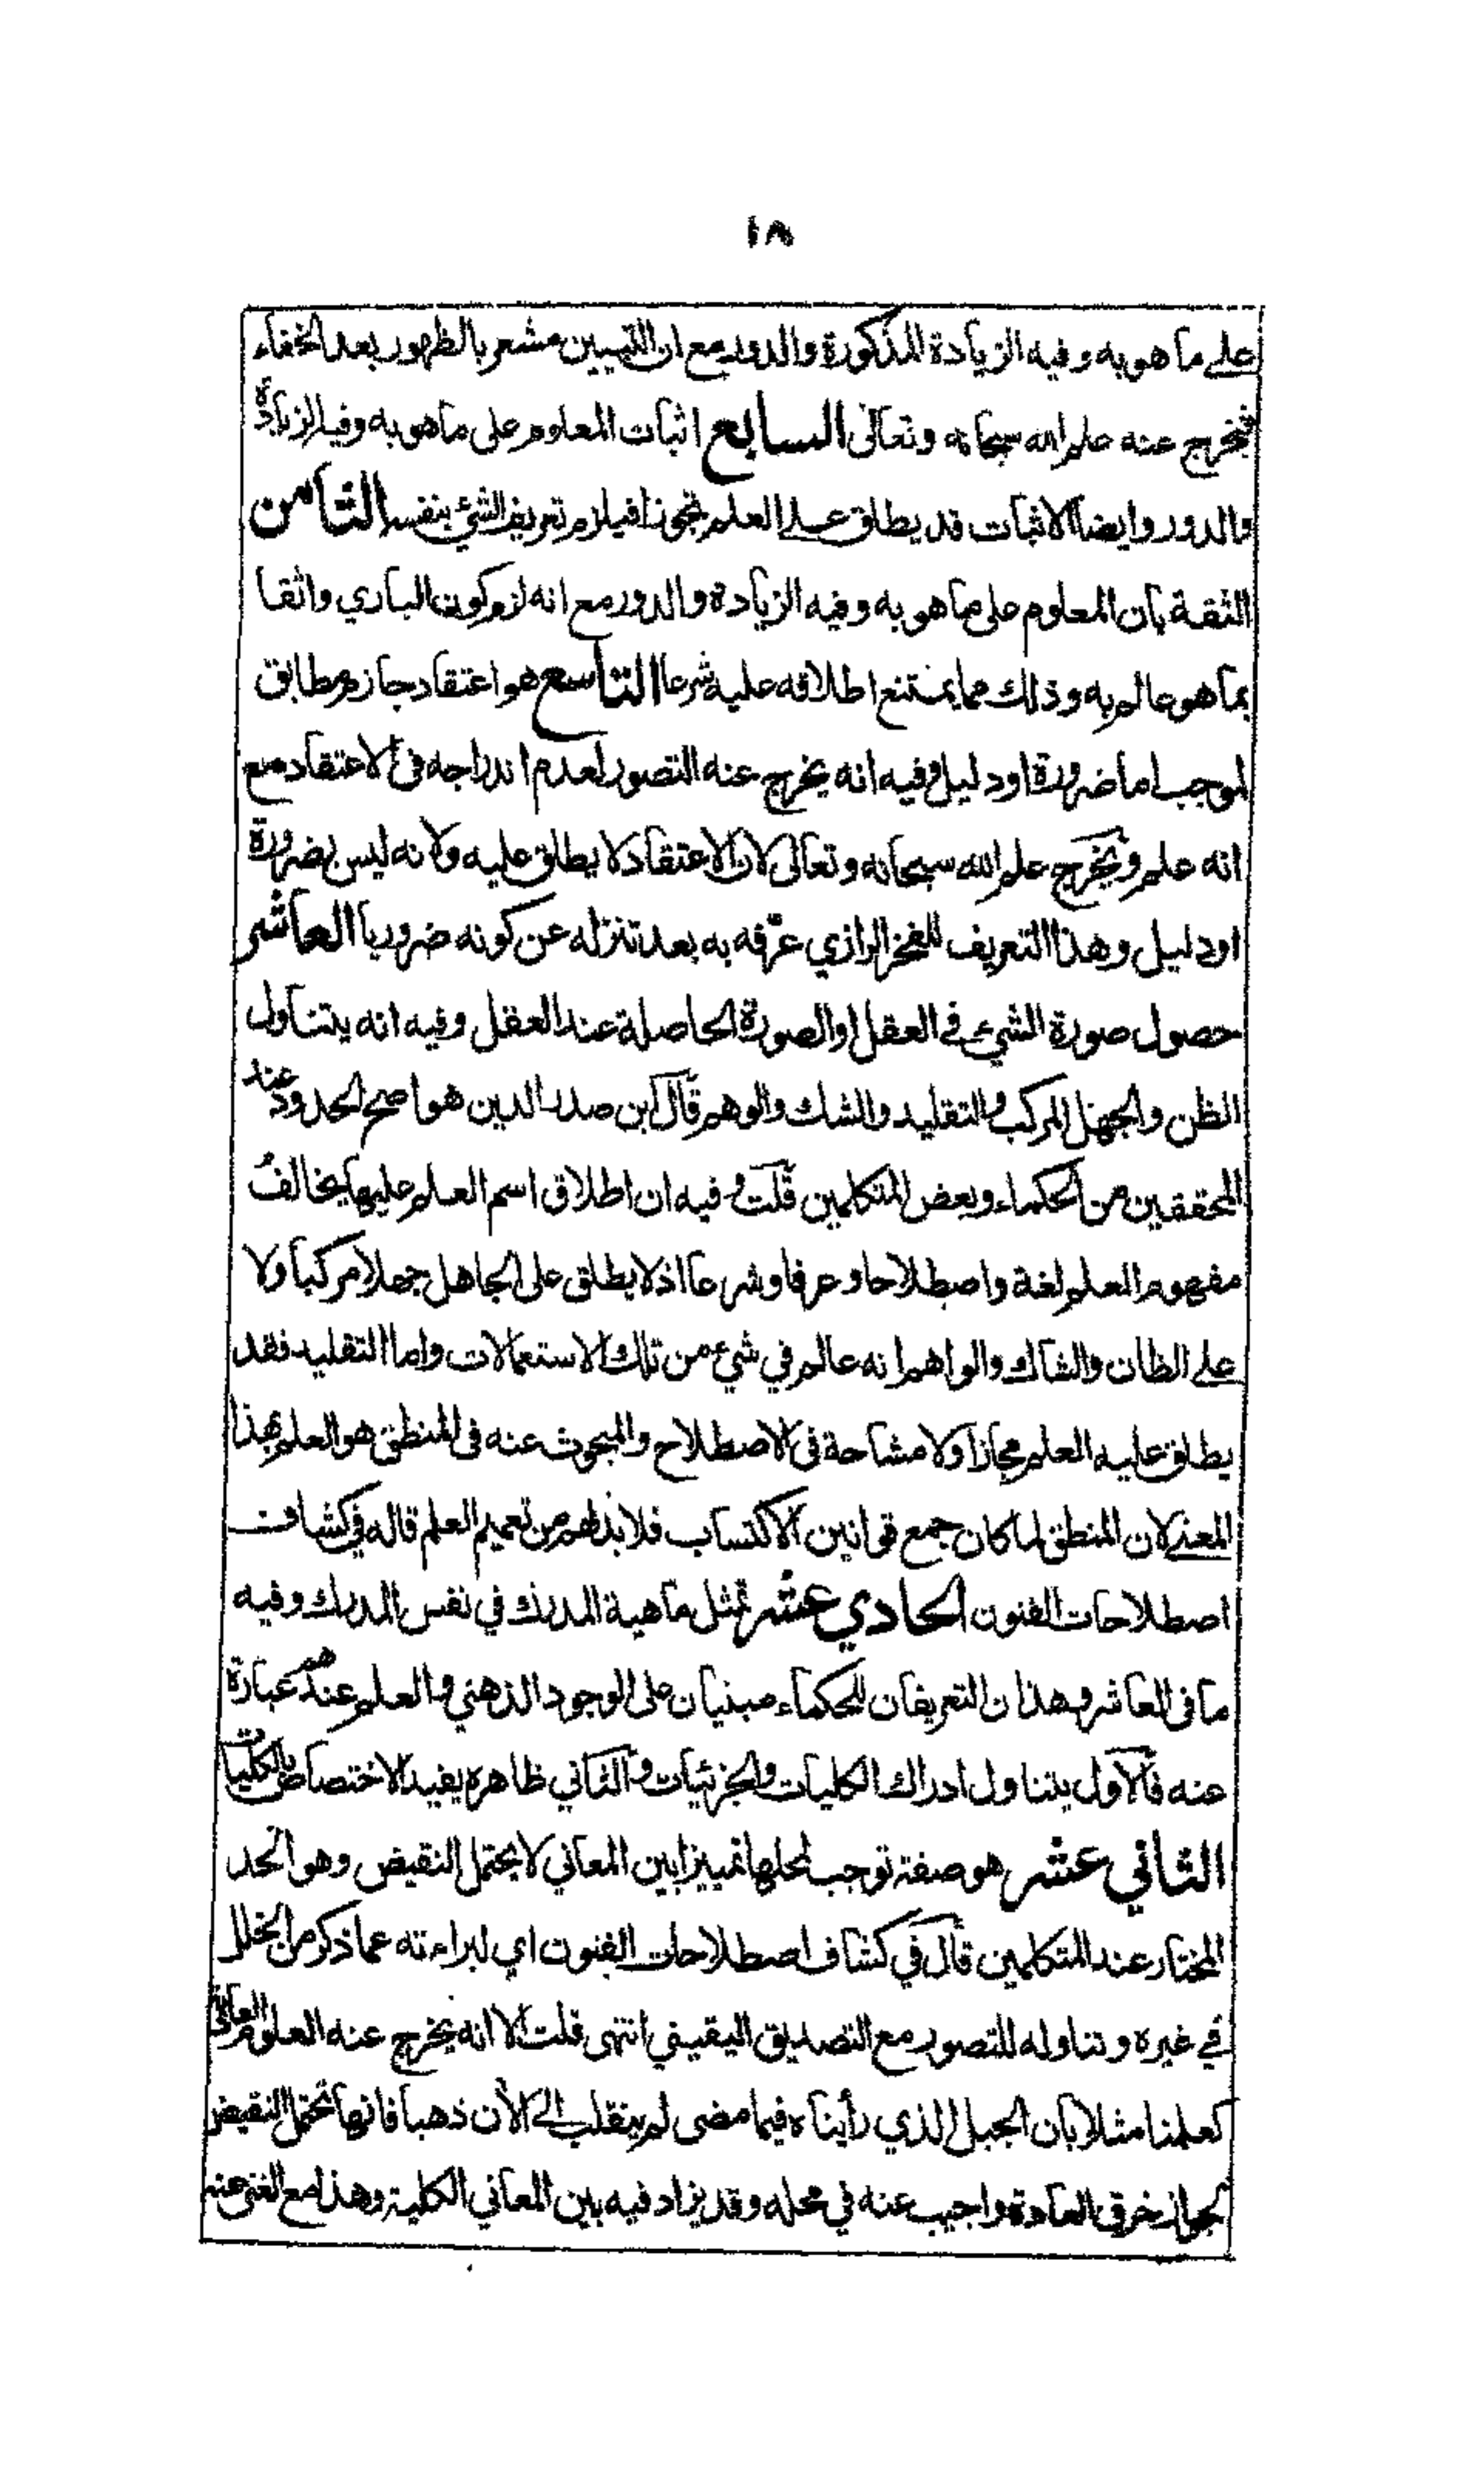 ١٨
على ما هو به وفيه الزيادة المذكورة والدور مع ان التبيين مشعر بالظهور بعد الخفاء
فيخرج عنه علم الله سبحانه وتعالى السابع اثبات المعلوم على ما هو به وفيه الزيادة
والدور وايضا الاثبات قد يطلق على العلم تجوزا فيلزم تعريف الشيء بنفسه الثامن
الثقة بان المعلوم على ما هو به وفيه الزيادة والدور مع انه لزم كون الباري واثقا
بما هو عالم به وذلك مما يمتنع اطلاقه عليه شرعا التاسع هو اعتقاد جازم مطابق
لموجب اما ضرورة او دليل وفيه انه يخرج عنه التصور لعدم اندراجه في الاعتقاد مع
انه علم ويخرج علم الله سبحانه وتعالى لان الاعتقاد لا يطلق عليه ولانه ليس بضرورة
او دليل وهذا التعريف للفخر الرازي عرّفه به بعد تنزله عن كونه ضروريا العاشر
حصول صورة الشيء في العقل او الصورة الحاصلة عند العقل وفيه انه يتناول
الظن والجهل المركب والتقليد والشك والوهم قال ابن صدر الدين هو اصح الحدود عند
المحققين من الحكماء وبعض المتكلمين قلت وفيه ان اطلاق اسم العلم عليها يخالف
مفهوم العلم لغة واصطلاحا وعرفا وشرعا اذ لا يطلق على الجاهل جهلا مركبا ولا
على الظان والشاك والواهم انه عالم في شيء من تلك الاستعمالات واما التقليد فقد
يطلق عليه العلم مجازا ولا مشاحة في الاصطلاح والمبحوث عنه في المنطق هو العلم بهذا
المعنى لان المنطق لما كان جمع قوانين الاكتساب فلا بد لهم من تعميم العلم قاله في كشاف
اصطلاحات الفنون الحادي عشر تمثل ماهية المدرك في نفس المدرك وفيه
ما في العاشر وهذان التعريفان للحكماء مبنيان على الوجود الذهني والعلم عندهم عبارة
عنه فالاول يتناول ادراك الكليات والجزئيات والثاني ظاهره يفيد الاختصاص بالكليات
الثاني عشر هو صفة توجب لمحلها تمييزا بين المعاني لا يحتمل النقيض وهو الحد
المختار عند المتكلمين قال في كشاف اصطلاحات الفنون اي لبراءته عما ذكر من الخلل
في غيره وتناوله للتصور مع التصديق اليقيني انتهى قلت الا انه يخرج عنه العلوم العادية
كعلمنا مثلا بان الجبل الذي رأيناه فيما مضى لم ينقلب الى الآن ذهبا فانها تحتمل النقيض
لجواز خرق العادة واجيب عنه في محله وقد يزاد فيه بين المعاني الكلية وهذا مع الغنى عنه